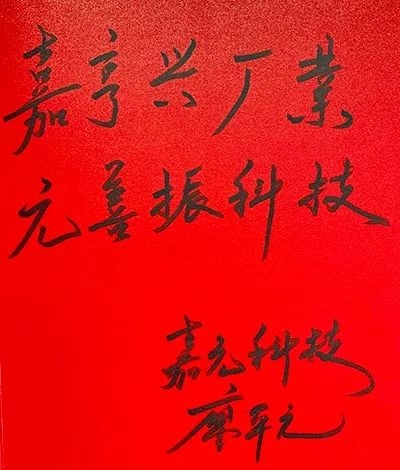 嘉亨兴厂业
元善振科技
嘉元科技
廖平元